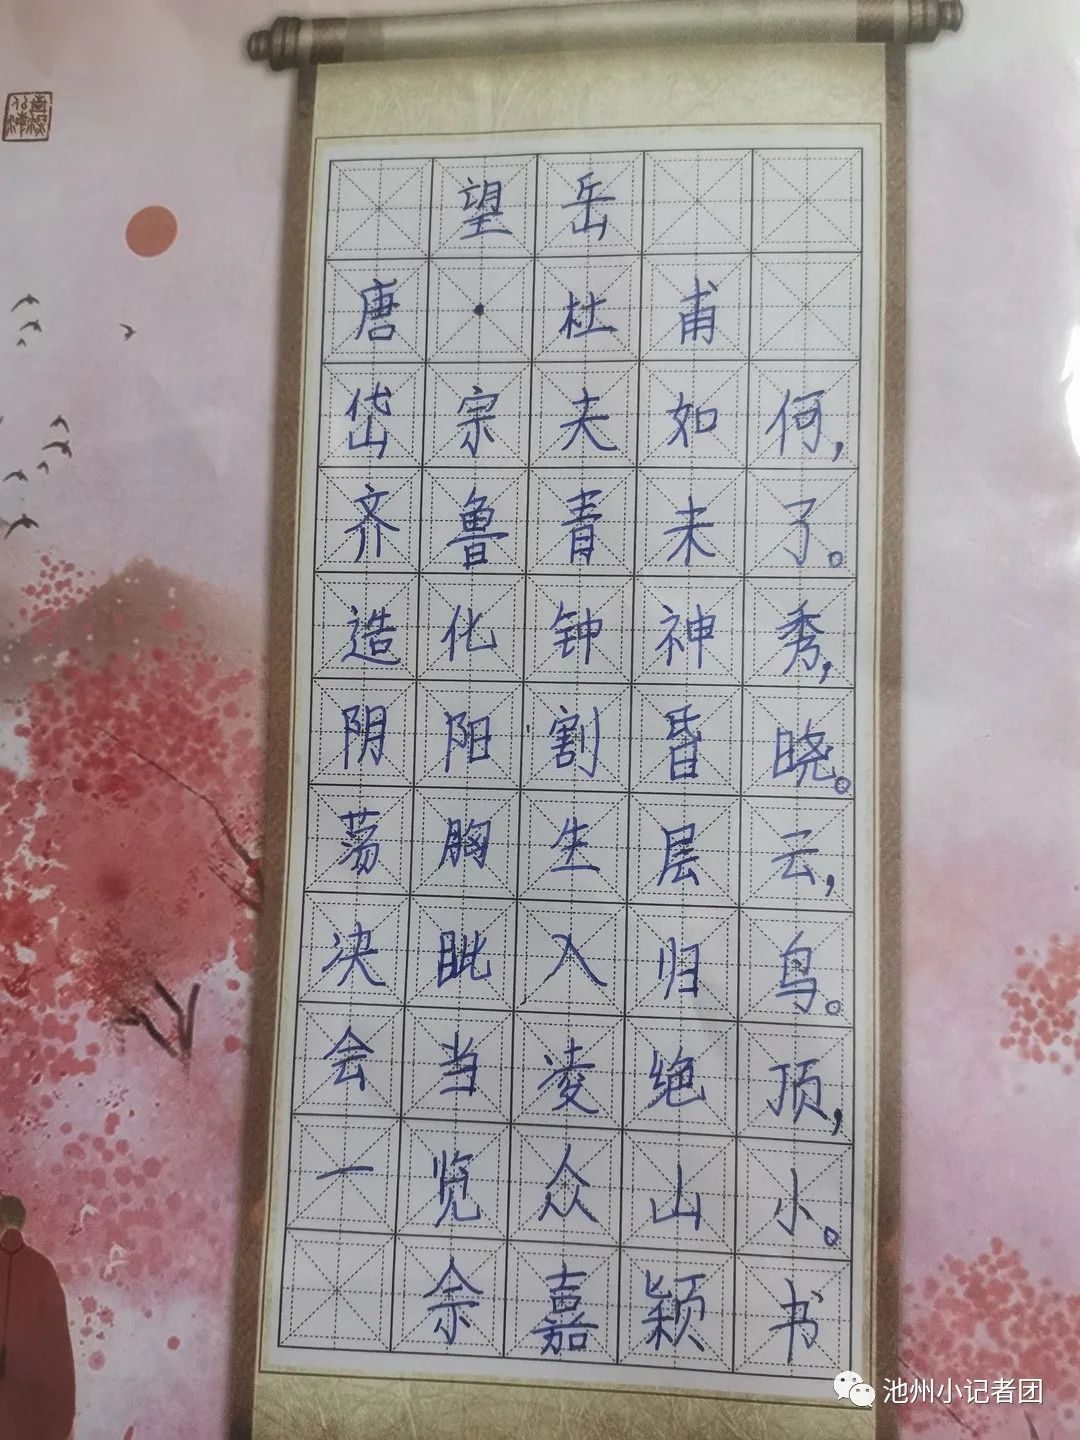 望岳
唐·杜甫
岱宗夫如何,
齐鲁青未了。
造化钟神秀,
阴阳割昏晓。
荡胸生层云,
决眦入归鸟。
会当凌绝顶,
一览众山小。
余嘉颖书
池州小记者团